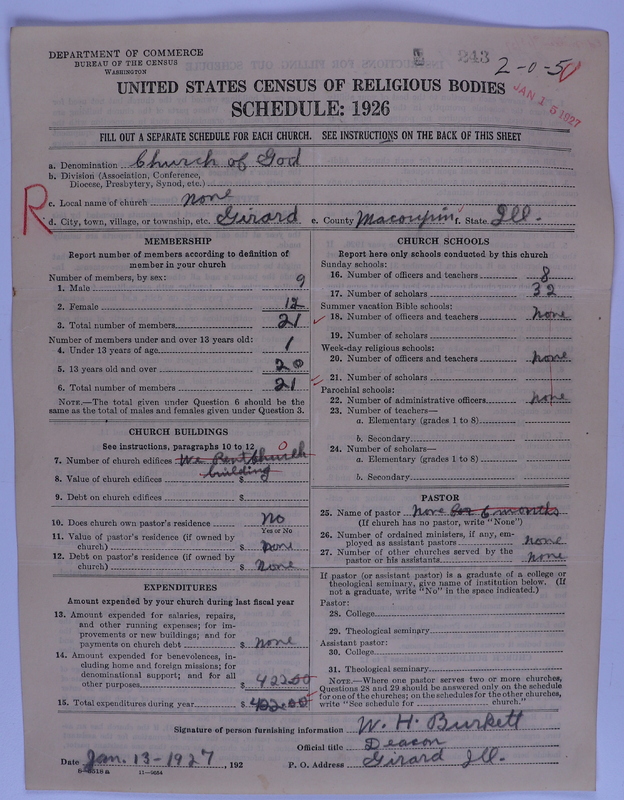 243
2-0-50
JAN 15 1927
DEPARTMENT OF COMMERCE
BUREAU OF THE CENSUS
WASHINGTON
UNITED STATES CENSUS OF RELIGIOUS BODIES
SCHEDULE: 1926
FILL OUT A SEPARATE SCHEDULE FOR EACH CHURCH. SEE INSTRUCTIONS ON THE BACK OF THIS SHEET
R
a. Denomination Church of God
b. Division (Association, Conference,
Diocese, Presbytery, Synod, etc.)
c. Local name of church none
d. City, town, village, or township, etc. Girard e. County Macoupin f. State Ill.
MEMBERSHIP
Report number of members according to definition of
member in your church
Number of members, by sex:
1. Male 9
2. Female 12
3. Total number of members 21
Number of members under and over 13 years old:
4. Under 13 years of age 1
5. 13 years old and over 20
6. Total number of members 21
NOTE.—The total given under Question 6 should be
same as the total of males and females given under Question 3.
CHURCH BUILDINGS
See instructions, paragraphs 10 to 12
7. Number of church edifices We Rent Church 0
building
8. Value of church edifices $
9. Debt on church edifices $
10. Does church own pastor's residence No
Yes or No
11. Value of pastor's residence (if owned by
church) $ none
12. Debt on pastor's residence (if owned by
church) $ none
EXPENDITURES
Amount expended by your church during last fiscal year
13. Amount expended for salaries, repairs,
and other running expenses; for im-
provements or new buildings; and for
payments on church debt $ none
14. Amount expended for benevolences, in-
cluding home and foreign missions; for
denominational support; and for all
other purposes $ 422.00
15. Total expenditures during year $ 422.00
CHURCH SCHOOLS
Report here only schools conducted by this church
Sunday schools:
16. Number of officers and teachers 8
17. Number of scholars 32
Summer vacation Bible schools:
18. Number of officers and teachers none
19. Number of scholars
Week-day religious schools:
20. Number of officers and teachers none
21. Number of scholars
Parochial schools:
22. Number of administrative officers none
23. Number of teachers—
a. Elementary (grades 1 to 8)
b. Secondary
24. Number of scholars—
a. Elementary (grades 1 to 8)
b. Secondary
PASTOR
25. Name of pastor None for 6 months
(If church has no pastor, write "None")
26. Number of ordained ministers, if any, em-
ployed as assistant pastors none
27. Number of other churches served by the
pastor or his assistants none
If pastor (or assistant pastor) is a graduate of a college or
theological seminary, give name of institution below. (If
not a graduate, write "No" in the space indicated.)
Pastor:
28. College
29. Theological seminary
Assistant pastor:
30. College
31. Theological seminary
NOTE.—Where one pastor serves two or more churches,
Questions 28 and 29 should be answered only on the schedule
for one of the churches; on the schedules for the other churches,
write "See schedule for church."
Signature of person furnishing information W. H. Burkett
Official title Deacon
Date Jan. 13-1927, 192 P. O. Address Girard Ill.
11-9654